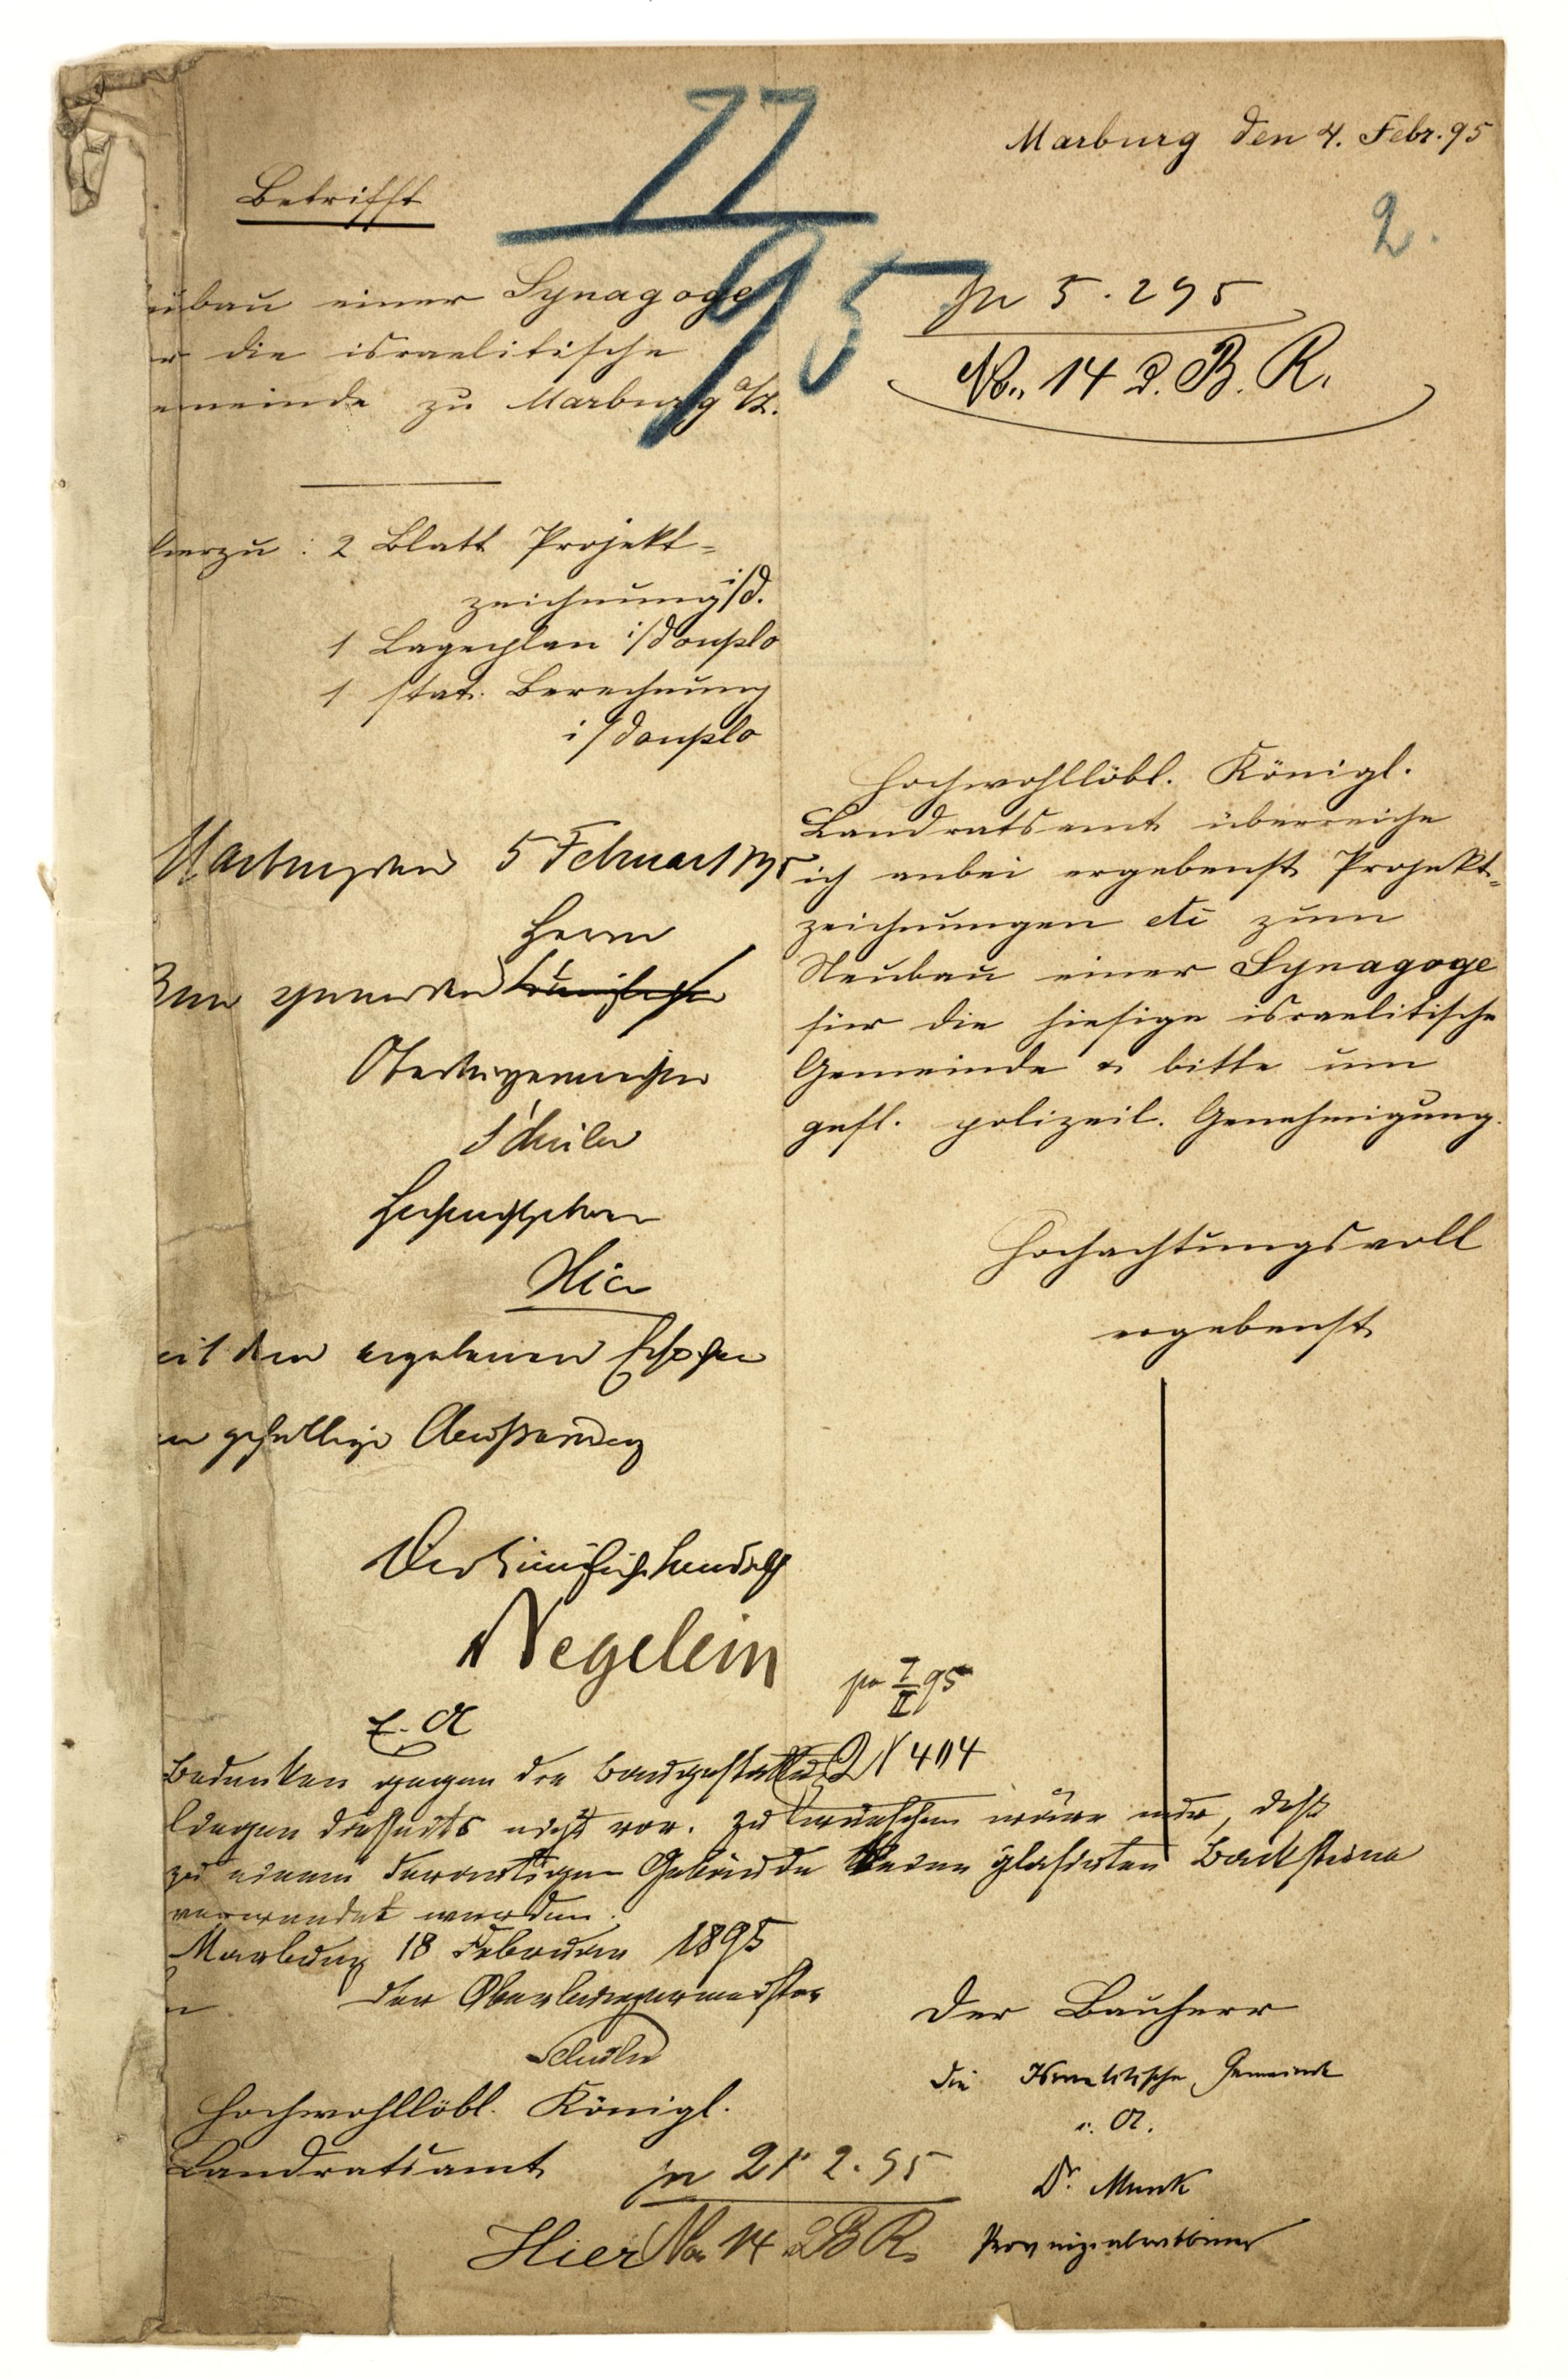 77
95
Marburg den 4. Febr. 95
2.
Betrifft
ubau einer Synagoge
r die israelitische
emeinde zu Marburg a/L.
pr 5. 2 95
No. 14 d. B. R.
hierzu: 2 Blatt Projekt-
zeichnung i/d.
1 Lageplan i/douplo
1 stat. Berechnung
i/douplo
Hochwohllöbl. Königl.
Landratsamt überreiche
ich anbei ergebenst Projekt-
zeichnungen etc zum
Neubau einer Synagoge
für die hiesige israelitische
Gemeinde & bitte um
gefl. polizeil. Genehmigung.
Hochachtungsvoll
ergebenst
Marburg den 5 Februar 1895
Herrn
Oberbürgermeister
Schüler
Hochwohlgeboren
Hier
mit dem ergebenen Ersuchen
um gefällige Aeußerung
Der Königliche Landrath
Negelein
pr 7/II 95
N 404
Bedenken gegen die Baugestattung
liegen diesseits nicht vor. Zu wünschen wäre nur, daß
zu einem derartigen Gebäude keine glasirten Backsteine
verwendet werden.
Marburg 18 Februar 1895
Der Oberbürgermeister
Schüler
Hochwohllöbl. Königl.
Landratsamt
Hier
pr 21. 2. 95
No. 14 d B R.
Der Bauherr
Die Israelitische Gemeinde
i. A.
Dr. Munk
Provinzialrabbiner